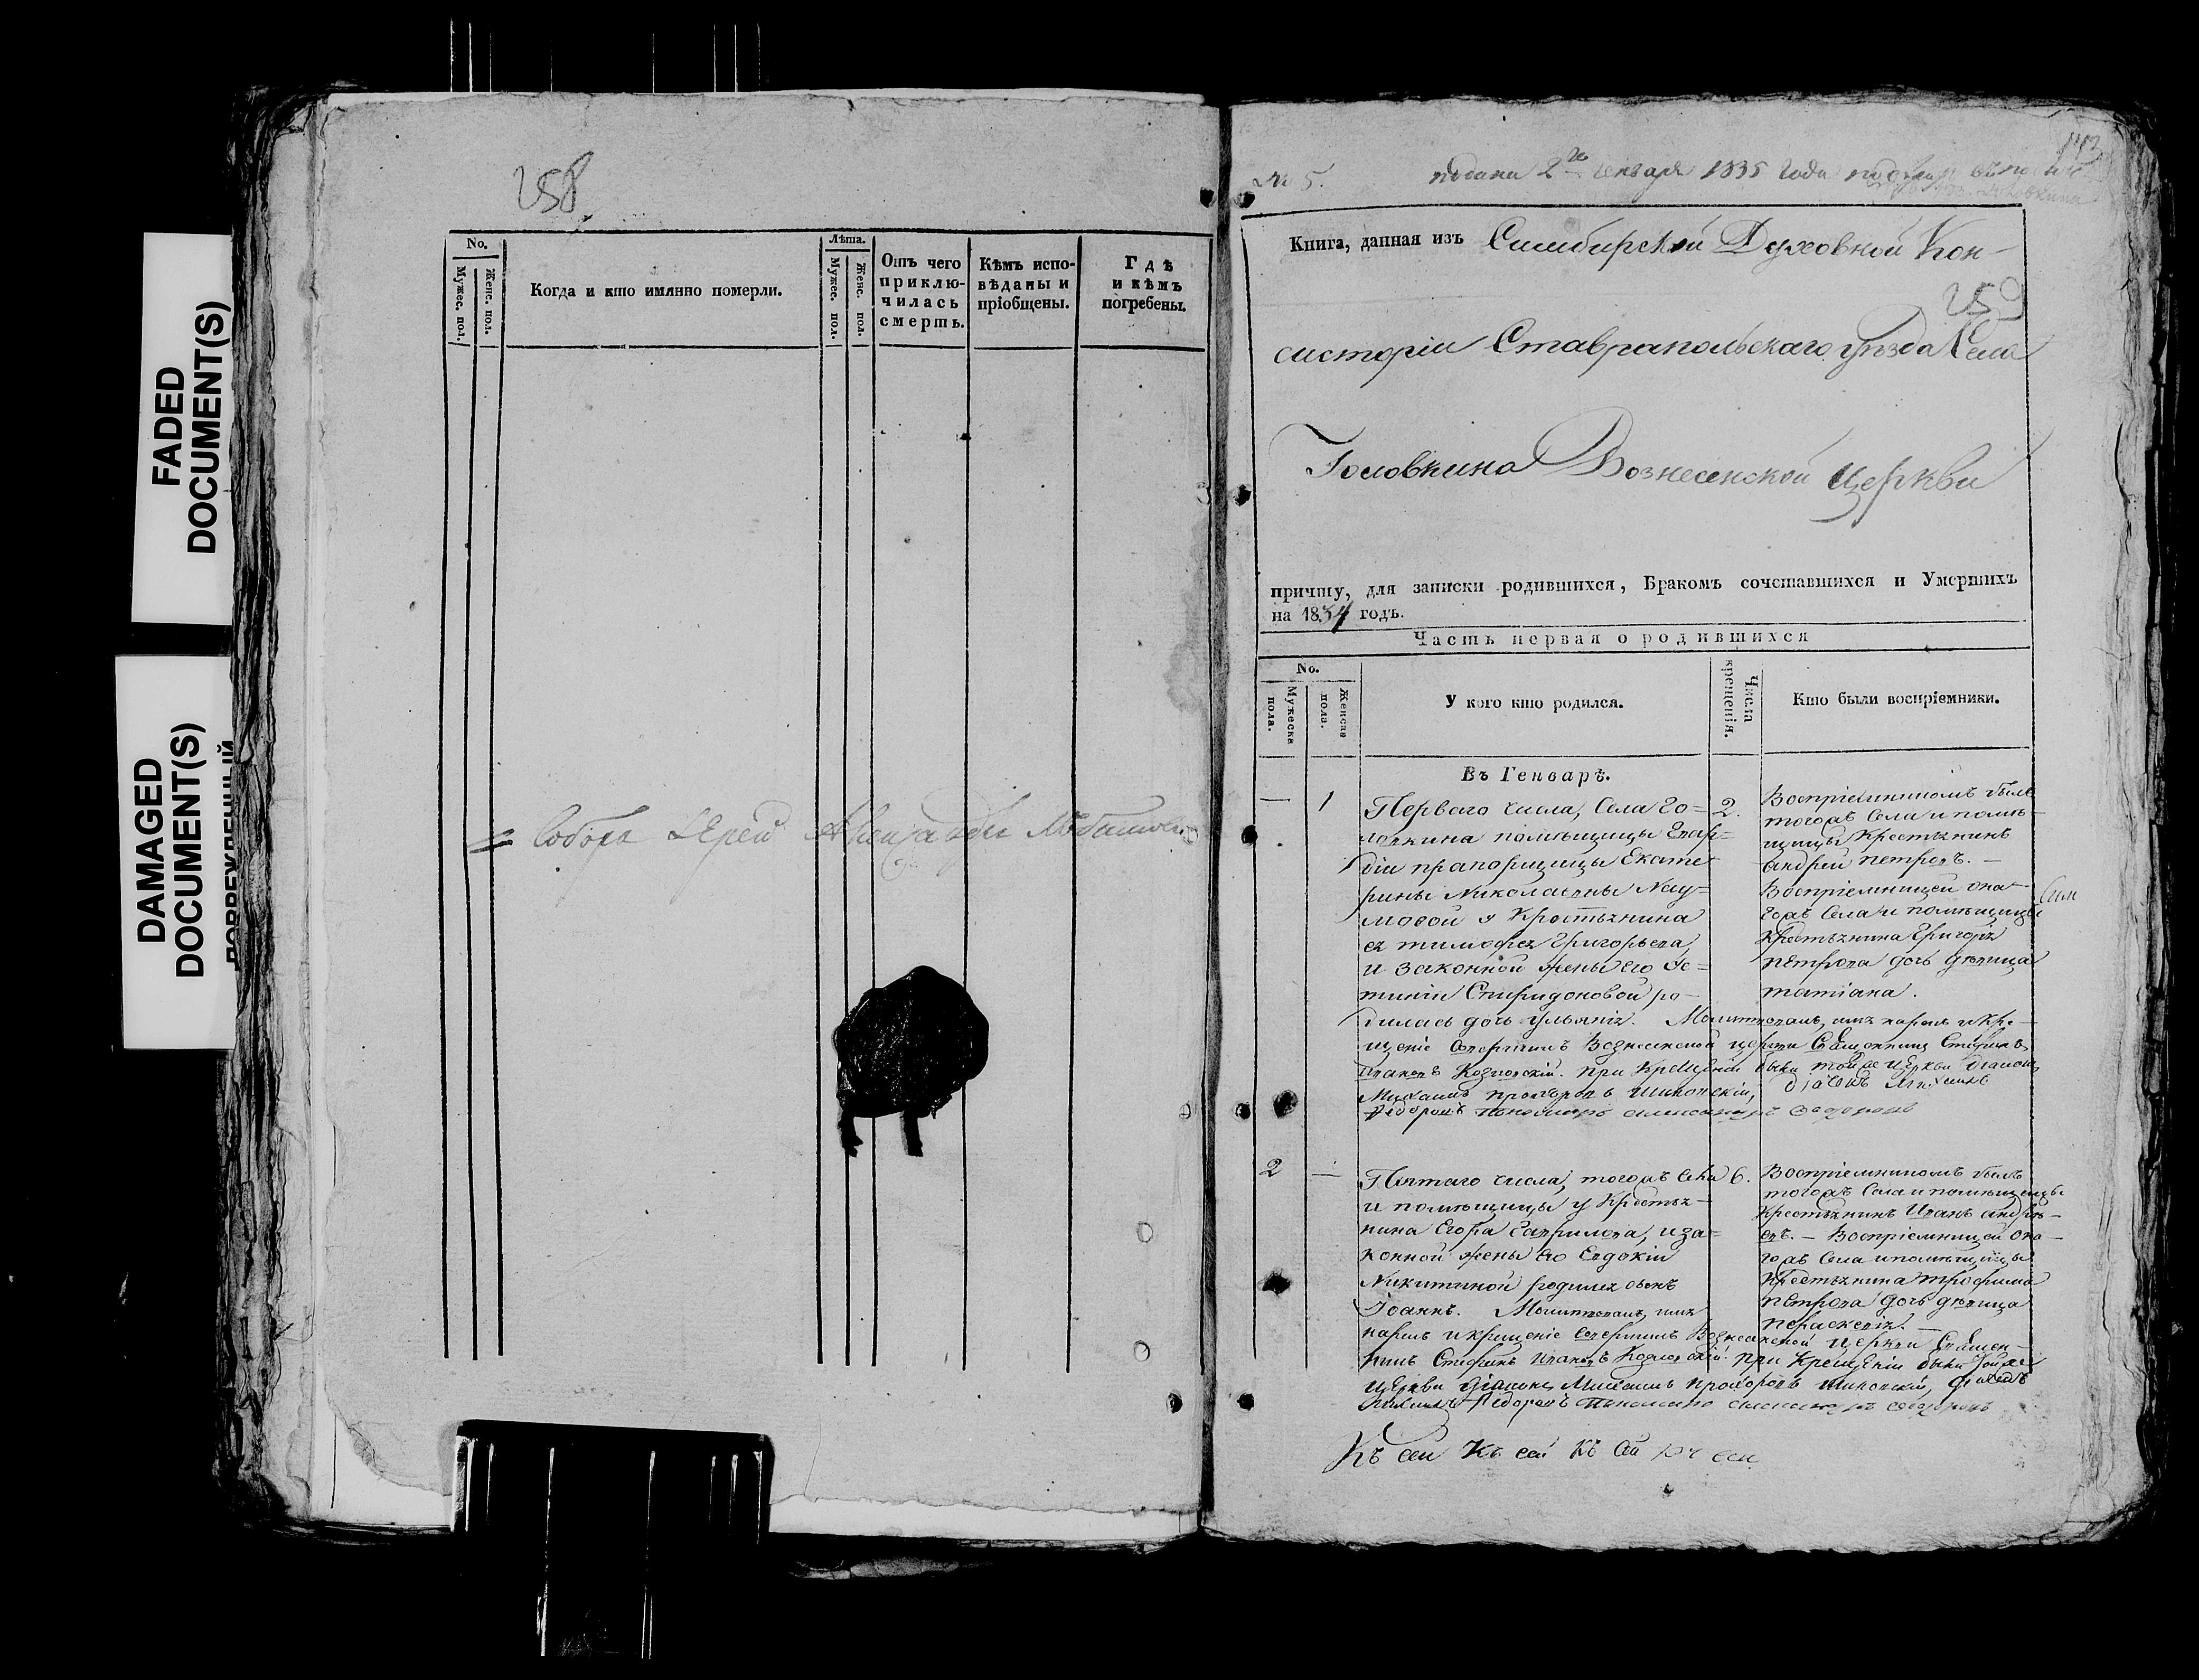 FADED
DOCUMENT(S)
DAMAGED
DOCUMENT(S)
258
No.
Мужес. пол.
Женс. пол.
Когда и кто имянно померли.
Лѣта.
Мужес. пол.
Женс. пол.
Отъ чего приключилась смерть.
Кѣмъ исповѣданы и пріобщены.
Гдѣ и кѣмъ погребены.
Собора Іерей
№ 5. подана 2го генваря 1835 года
259
Книга, данная изъ Симбирской Духовной Кон-
систоріи Ставрапольскаго уѣзда Села
Головкина Вознесенской церкви
причту, для записки родившихся, Бракомъ сочетавшихся и Умершихъ
на 1834 годъ.
Часть первая о родившихся
No.
Мужеска пола.
Женска пола.
У кого кто родился.
Числа крещенія.
Кто были воспріемники.
Въ Генварѣ.
— 1
Перваго числа, Села Го=
ловкина помѣщицы Гвар=
діи прапорщицы Екате
рины Николаевны Нау=
мовой у Крестьянина
ея тимофея Григорьева,
и законной жены его Ус=
тиніи Спиридоновой ро-
дилась дочь ульянія. Молитвовалъ, имя нарекъ и кре-
щеніе Совершилъ Вознесенской церкви Священникъ Стефанъ
Ивановъ Козловскій. При Крещеніи были той же церкви діаконъ
Михаилъ прохоровъ
2.
Воспріемникомъ былъ
тогожъ Села и помѣ-
щицы Крестьянинъ
андрей петровъ. —
Воспріемницей она-
гожъ Села и помѣщицы
Крестьянина Григорія
петрова дочь дѣвица
татіана.
дьячекъ Михаилъ
Федоровъ Пономарь александръ
2 —
Пятаго числа, тогожъ Села
и помѣщицы у Крестья-
нина Егора Гаврилова, и за=
конной жены его Евдокіи
Никитиной родился сынъ
Іоаннъ. Молитвовалъ, имя
нарекъ и крещеніе Совершилъ Вознесенской церкви Священ-
никъ Стефанъ Ивановъ Козловскій. При Крещеніи были той же
церкви діаконъ Михаилъ прохоровъ
6.
Воспріемникомъ былъ
тогожъ Села и помѣщицы
крестьянинъ Иванъ андрѣ-
евъ. — Воспріемницей она-
гожъ Села и помѣщицы
Крестьянина трофима
петрова дочь дѣвица
параскевія. —
Михаилъ Федоровъ Пономарь
Къ сей Къ сей Къ сей